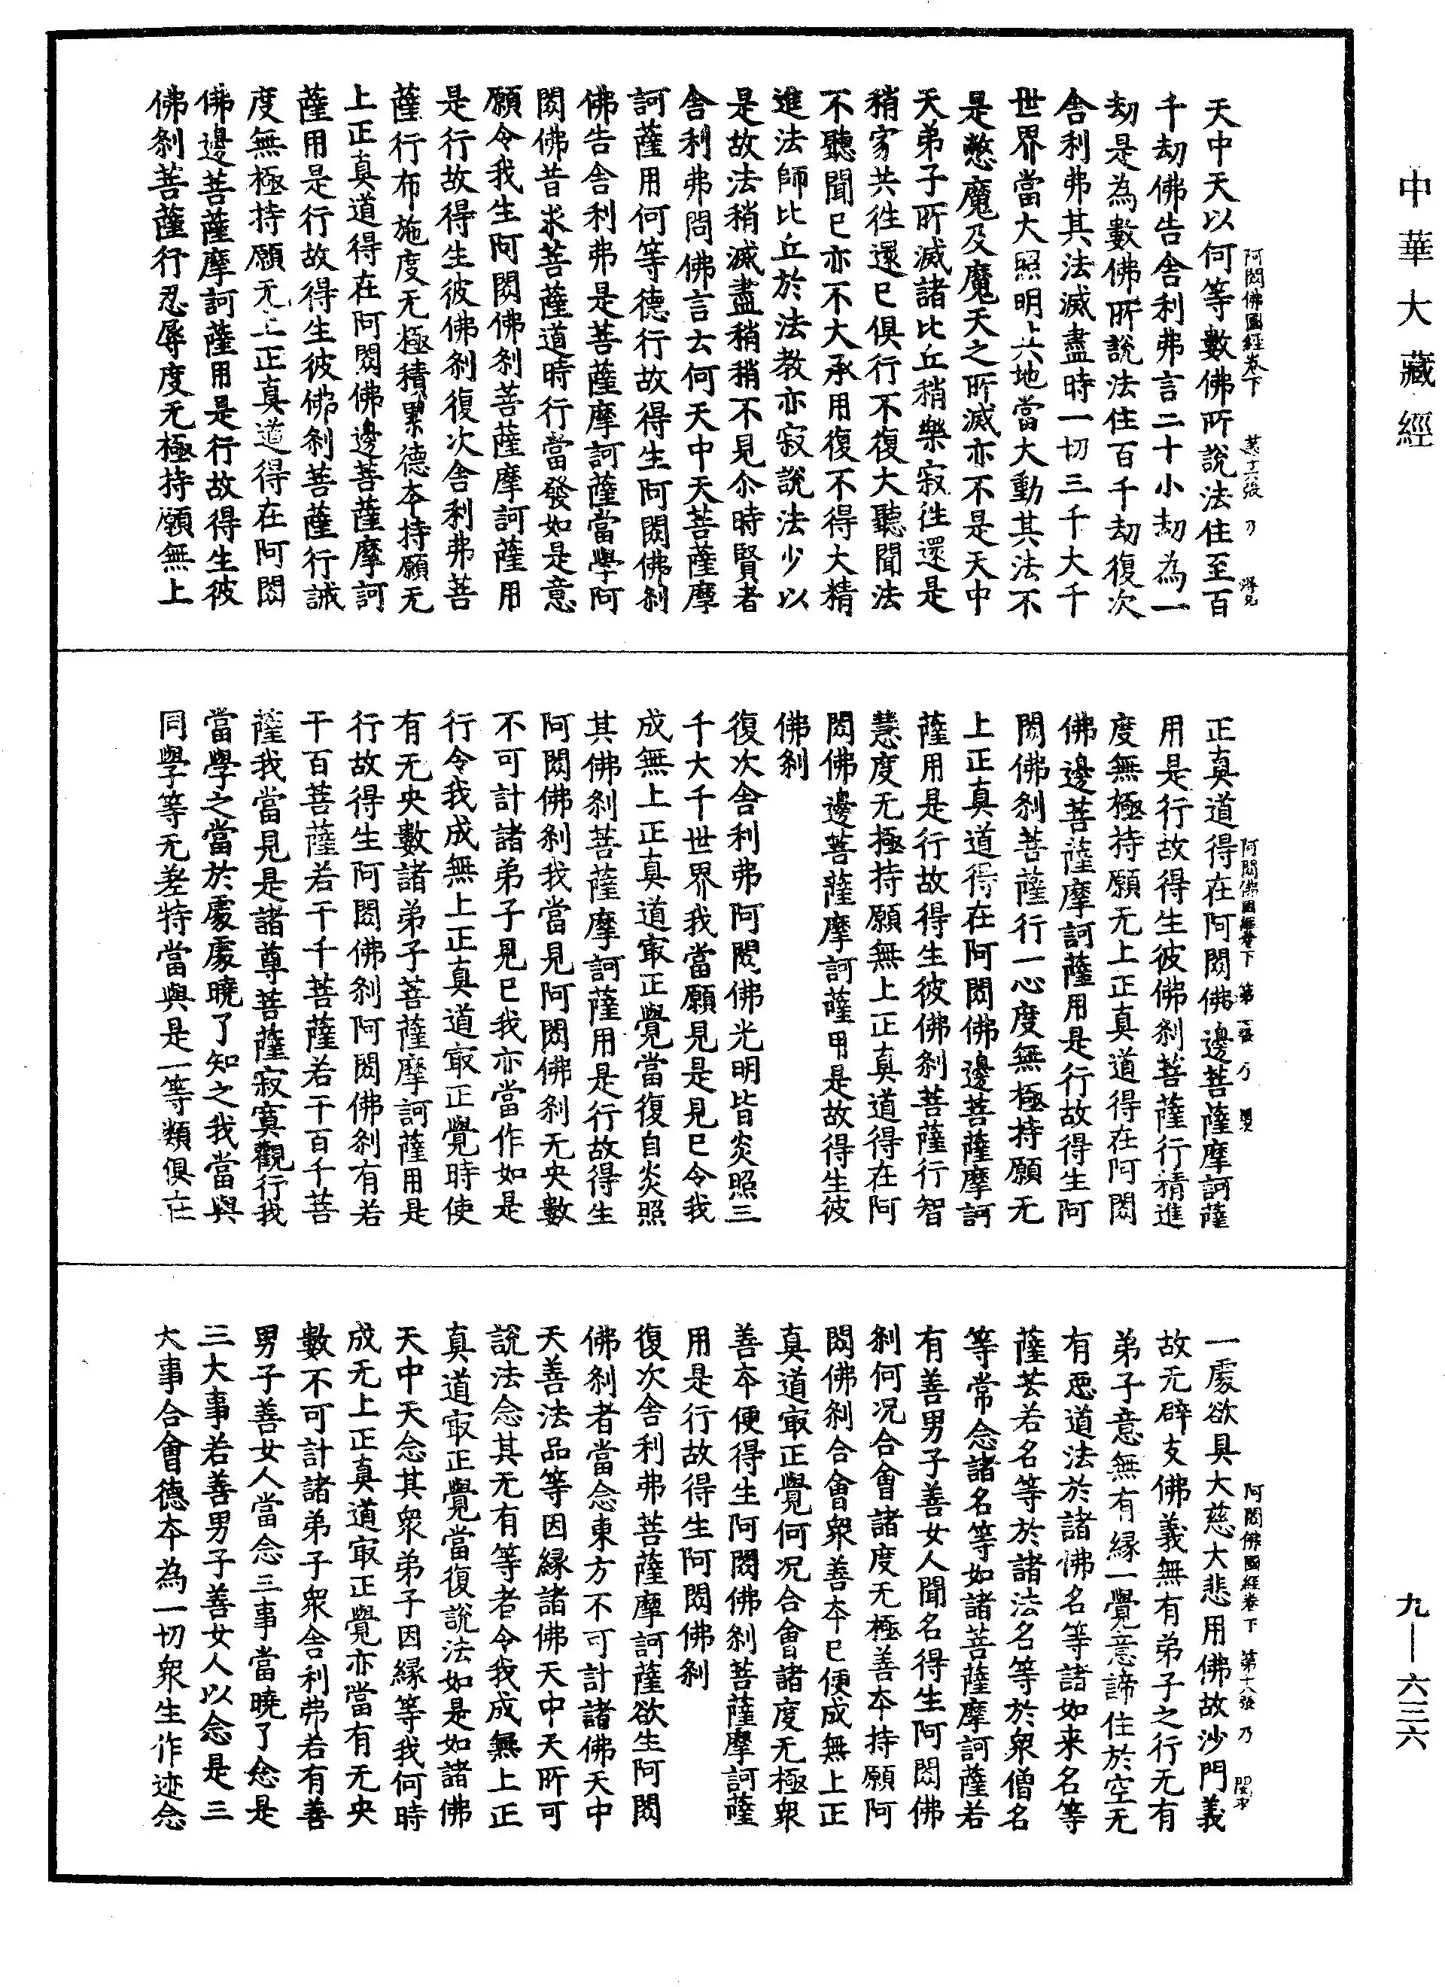 中華大藏經
九—六三六
阿閦佛國經卷下
天中天以何等數佛所說法住至百
千劫佛告舍利弗言二十小劫為一
劫是為數佛所說法住百千劫復次
舍利弗其法滅盡時一切三千大千
世界當大照明上六地當大動其法不
是憋魔及魔天之所滅亦不是天中
天弟子所滅諸比丘稍樂寂往還是
稍家共往還已俱行不復大聽聞法
不聽聞已亦不大承用復不得大精
進法師比丘於法教亦寂說法少以
是故法稍滅盡稍稍不見尒時賢者
舍利弗問佛言云何天中天菩薩摩
訶薩用何等德行故得生阿閦佛剎
佛告舍利弗是菩薩摩訶薩當學阿
閦佛昔求菩薩道時行當發如是意
願令我生阿閦佛剎菩薩摩訶薩用
是行故得生彼佛剎復次舍利弗菩
薩行布施度无極積累德本持願无
上正真道得在阿閦佛邊菩薩摩訶
薩用是行故得生彼佛剎菩薩行誡
度無極持願无上正真道得在阿閦
佛邊菩薩摩訶薩用是行故得生彼
佛剎菩薩行忍辱度无極持願無上
阿閦佛國經卷下
正真道得在阿閦佛邊菩薩摩訶薩
用是行故得生彼佛剎菩薩行精進
度無極持願无上正真道得在阿閦
佛邊菩薩摩訶薩用是行故得生阿
閦佛剎菩薩行一心度無極持願无
上正真道得在阿閦佛邊菩薩摩訶
薩用是行故得生彼佛剎菩薩行智
慧度无極持願無上正真道得在阿
閦佛邊菩薩摩訶薩用是故得生彼
佛剎
復次舍利弗阿閦佛光明皆炎照三
千大千世界我當願見是見已令我
成無上正真道㝡正覺當復自炎照
其佛剎菩薩摩訶薩用是行故得生
阿閦佛剎我當見阿閦佛剎无央數
不可計諸弟子見已我亦當作如是
行令我成無上正真道㝡正覺時使
有无央數諸弟子菩薩摩訶薩用是
行故得生阿閦佛剎阿閦佛剎有若
干百菩薩若干千菩薩若干百千菩
薩我當見是諸尊菩薩寂寞觀行我
當學之當於處處曉了知之我當與
同學等无差特當與是一等類俱在
阿閦佛國經卷下 第十八張 乃
一處欲具大慈大悲用佛故沙門義
故无辟支佛義無有弟子之行无有
弟子意無有緣一覺意諦住於空无
有惡道法於諸佛名等諸如來名等
薩芸若名等於諸法名等於衆僧名
等常念諸名等如諸菩薩摩訶薩若
有善男子善女人聞名得生阿閦佛
剎何況合會諸度无極善本持願阿
閦佛剎合會衆善本已便成無上正
真道㝡正覺何況合會諸度无極衆
善本便得生阿閦佛剎菩薩摩訶薩
用是行故得生阿閦佛剎
復次舍利弗菩薩摩訶薩欲生阿閦
佛剎者當念東方不可計諸佛天中
天善法品等因緣諸佛天中天所可
說法念其无有等者令我成無上正
真道㝡正覺當復說法如是如諸佛
天中天念其衆弟子因緣等我何時
成无上正真道㝡正覺亦當有无央
數不可計諸弟子衆舍利弗若有善
男子善女人當念三事當曉了念是
三大事若善男子善女人以念是三
大事合會德本為一切衆生作迹念